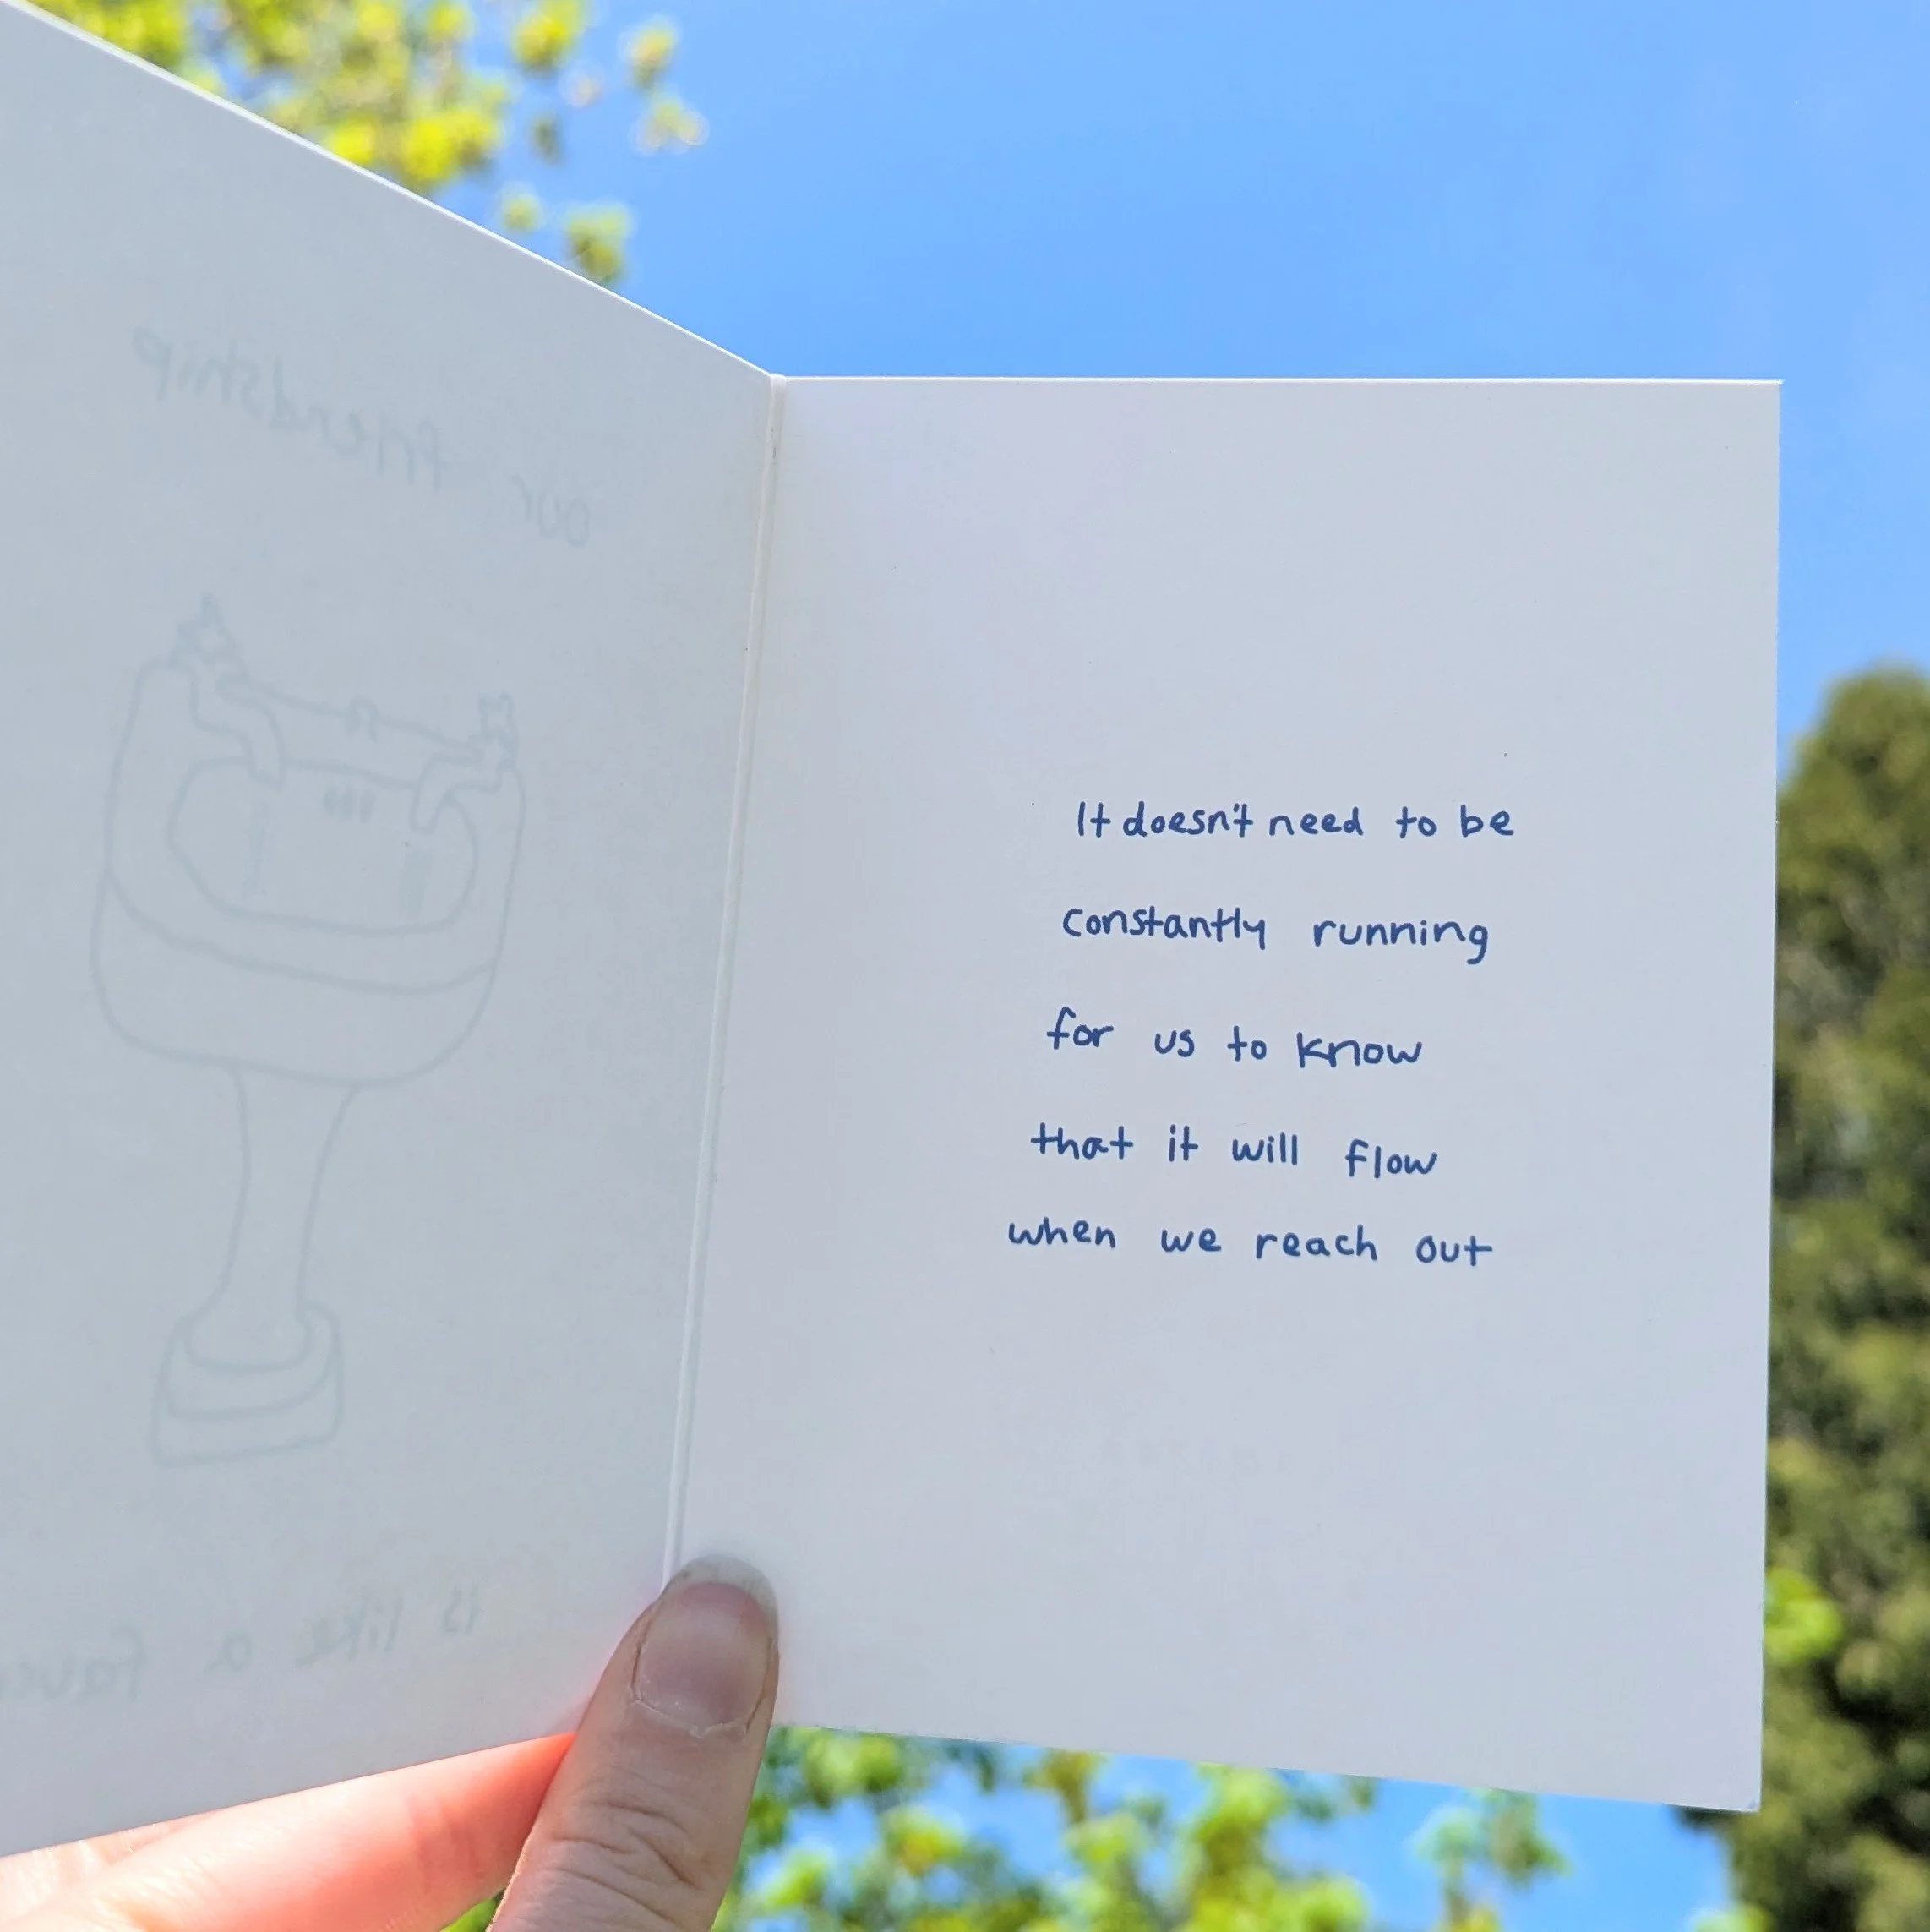 our friendship
is like a
It doesn't need to be
constantly running
for us to know
that it will flow
when we reach out